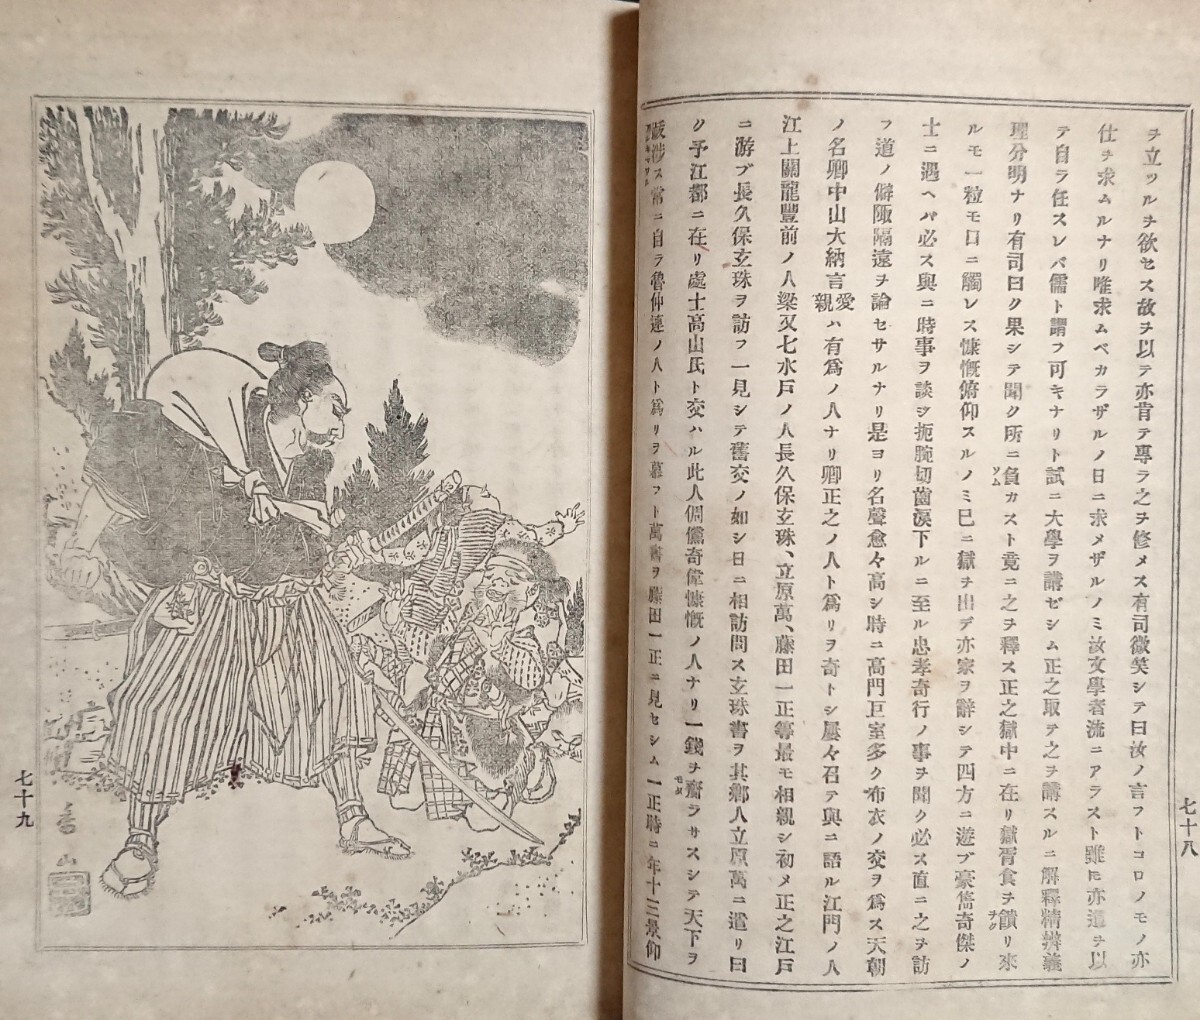 ヲ立ツルヲ欲セス故ヲ以テ亦肯テ專ラ之ヲ修メス有司微笑シテ曰汝ノ言フトコロノモノ亦
仕ヲ求ムルナリ唯求ムベカラザルノ日ニ求メザルノミ汝文學者流ニアラスト雖𪜈亦道ヲ以
テ自ラ任スレバ儒ト謂フ可キナリト試ニ大學ヲ講ゼシム正之取テ之ヲ講スルニ解釋精辨義
理分明ナリ有司曰ク果シテ聞ク所ニ負ソムカスト竟ニ之ヲ釋ス正之獄中ニ在リ獄胥食ヲ饋ヲクリ來
ルモ一粒モ口ニ觸レス慷慨俯仰スルノミ已ニ獄ヲ出デ亦家ヲ辭シテ四方ニ遊ブ豪儁奇傑ノ
士ニ遇ヘバ必ス與ニ時事ヲ談ジ扼腕切齒淚下ルニ至ル忠孝奇行ノ事ヲ聞ク必ス直ニ之ヲ訪
フ道ノ僻陬隔遠ヲ論セサルナリ是ヨリ名聲愈々高シ時ニ高門巨室多ク布衣ノ交ヲ爲ス天朝
ノ名卿中山大納言愛親ハ有爲ノ人ナリ卿正之ノ人ト爲リヲ奇トシ屢々召テ與ニ語ル江門ノ人
江上關龍豐前ノ人簗又七水戸ノ人長久保玄珠、立原萬、藤田一正等最モ相親シ初メ正之江戸
ニ游ブ長久保玄珠ヲ訪フ一見シテ舊交ノ如シ日ニ相訪問ス玄珠書ヲ其鄕人立原萬ニ遣リ曰
ク予江都ニ在リ處士高山氏ト交ハル此人倜儻奇偉慷慨ノ人ナリ一錢ヲ齎モタラサスシテ天下ヲ
跋涉ス常ニ自ラ魯仲連ノ人ト爲リヲ慕フト萬書ヲ藤田一正ニ見セシム一正時ニ年十三景仰
七十八
七十九